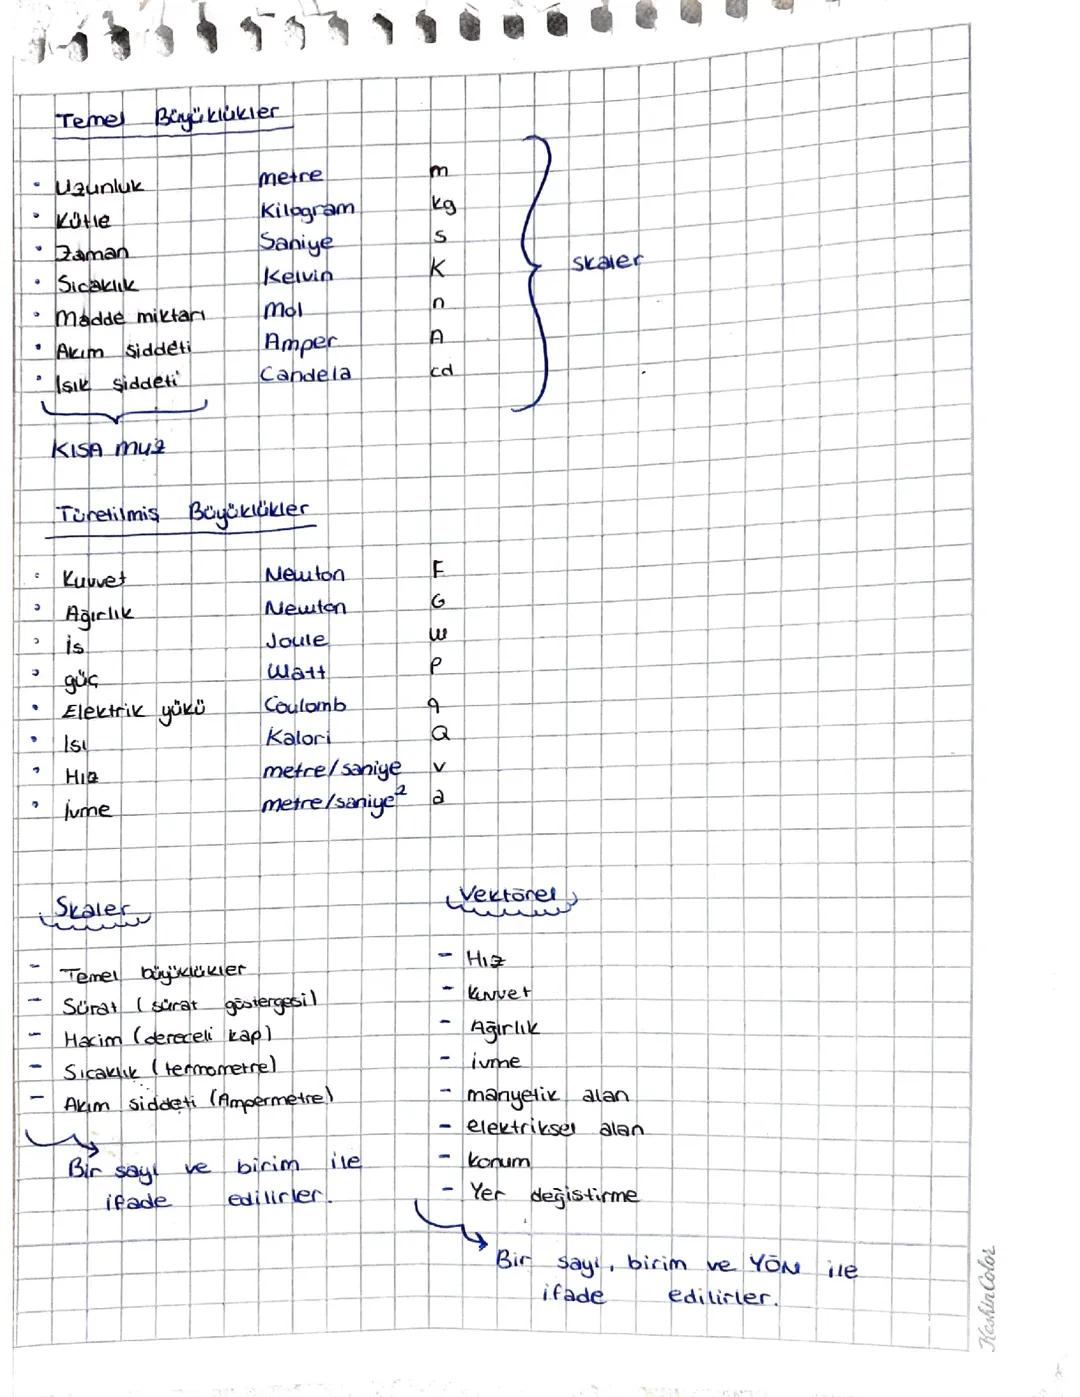 Temel Büyüklükler
• Uzunluk metre m
• Kütle Kilogram kg
• Zaman Saniye s
• Sıcaklık Kelvin K
• Madde miktarı Mol n
• Akım şiddeti Amper A
• Işık şiddeti Candela cd
skaler
KISA muz
Türetilmiş Büyüklükler
• Kuvvet Newton F
• Ağırlık Newton G
• İş Joule W
• güç Watt P
• Elektrik yükü Coulomb q
• Isı Kalori Q
• Hız metre/saniye v
• İvme metre/saniye² a
Skaler
- Temel büyüklükler
- Sürat (sürat göstergesi)
- Hacim (dereceli kap)
- Sıcaklık (termometre)
- Akım şiddeti (Ampermetre)
Bir sayı ve birim ile
ifade edilirler.
Vektörel
- Hız
- Kuvvet
- Ağırlık
- ivme
- manyetik alan
- elektriksel alan
- konum
- Yer değiştirme
Bir sayı, birim ve YÖN ile
ifade edilirler.
Keskin Color